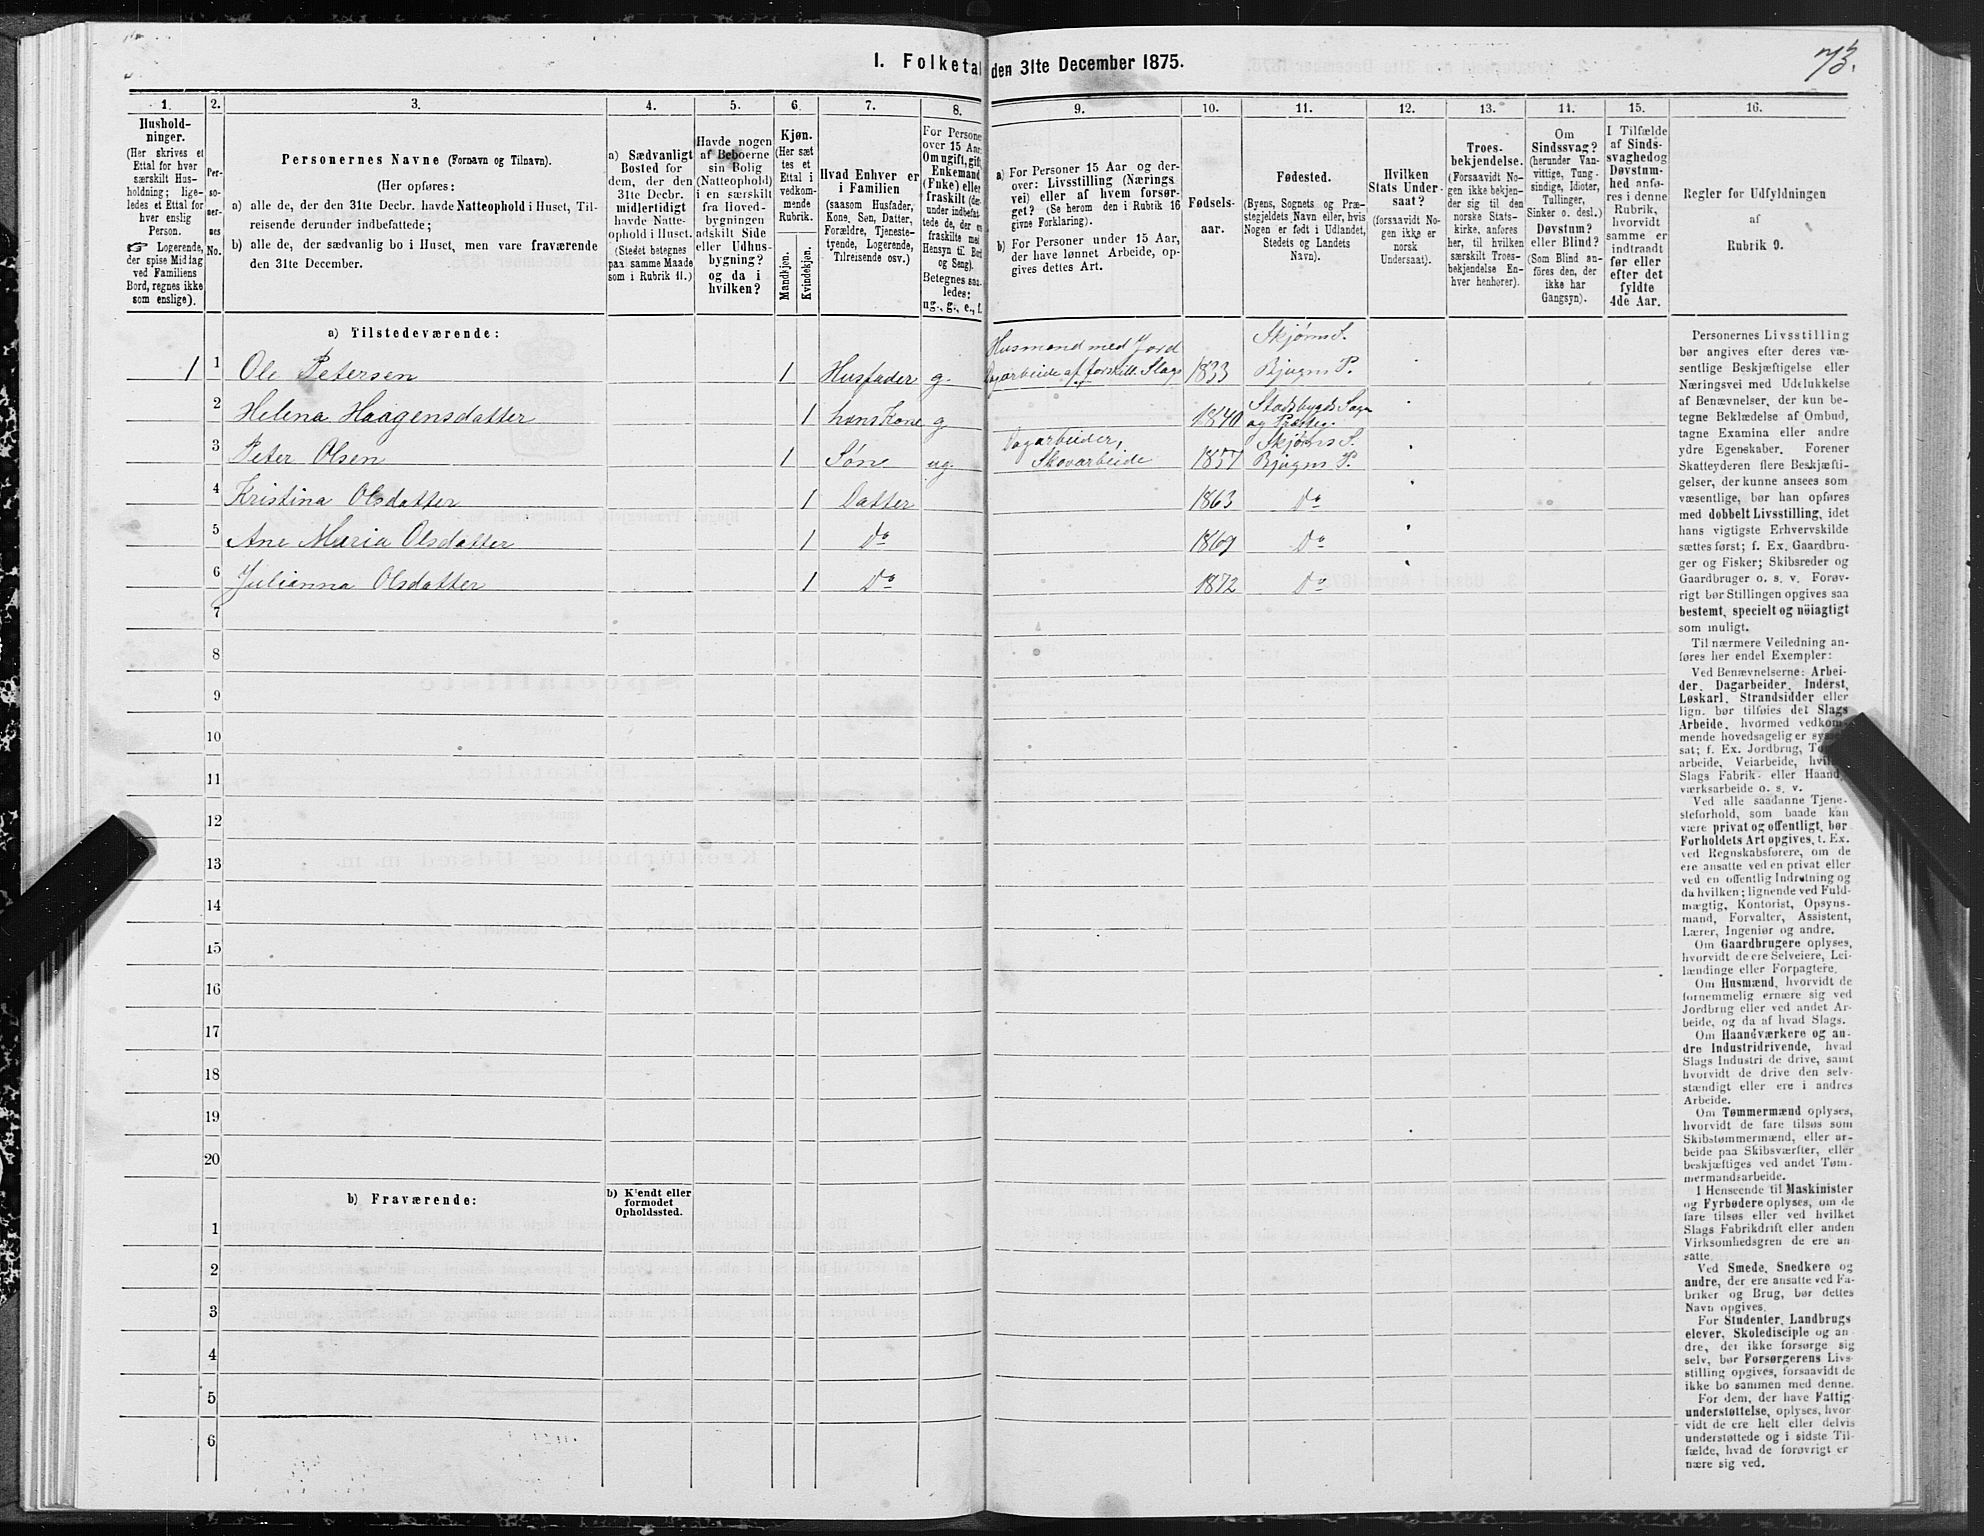 73.
I. Folketal den 31te December 1875.
1. 2. 3. 4. 5. 6. 7. 8. 9. 10. 11. 12. 13. 14. 15. 16.
Hushold-
ninger.
(Her skrives et
Ettal for hver
særskilt Hus-
holdning; lige-
ledes et Ettal for
hver enslig
Person.
☞ Logerende,
der spise Middag
ved Familiens
Bord, regnes ikke
som enslige).
Per-
so-
ner-
nes
No.
Personernes Navne (Fornavn og Tilnavn).
(Her opføres:
a) alle de, der den 31te Decbr. havde Natteophold i Huset, Til-
reisende derunder indbefattede;
b) alle de, der sædvanlig bo i Huset, men vare fraværende
den 31te December.
a) Sædvanligt
Bosted for
dem, der den
31te Decbr.
midlertidigt
havde Natte-
ophold i Huset.
(Stedet betegnes
paa samme Maade
som i Rubrik 11.)
Havde nogen
af Beboerne
sin Bolig
(Natteophold)
i en særskilt
fra Hoved-
bygningen
adskilt Side
eller Udhus-
bygning?
og da i
hvilken?
Kjøn.
(Her sæt
tes et
Ettal i
vedkom-
mende
Rubrik.
Mandkjøn.
Kvindekjøn.
Hvad Enhver er
i Familien
(saasom Husfader,
Kone, Søn, Datter,
Forældre, Tjeneste-
tyende, Logerende,
Tilreisende osv.)
For Persone
over 15 Aar:
Om ugift, gift,
Enkemand
(Fuke) eller
fraskilt (der-
under indbefat-
tede de, der en
fraskilte med
Hensyn til Bord
og Seng).
Betegnes saa-
ledes:
ug., g., e., f.
a) For Personer 15 Aar og der-
over: Livsstilling (Nærings
vei) eller af hvem forsør-
get? (Se herom den i Rubrik 16
givne Forklaring).
b) For Personer under 15 Aar,
der have lønnet Arbeide, op-
gives dettes Art.
Fødsels-
aar.
Fødested.
(Byens, Sognets og Præ-
stegjeldets Navn eller, hvis
Nogen er født i Udlandet,
Stedets og Landets
Navn).
Hvilken
Stats Under-
saat?
(forsaavidt No-
gen ikke er
norsk
Undersaat).
Troes-
bekjendelse.
(Forsaavidt No-
gen ikke bekjen-
der sig til den
norske Stats-
kirke, anføres
her, til hvilken
særskilt Troes-
bekjendelse En-
hver henhører).
Om
Sindssvag?
(herunder Van-
vittige, Tung-
sindige, Idioter,
Tullinger,
Sinker o. desl.)
Døvstum?
eller Blind?
(Som Blind an-
føres den, der
ikke har
Gangsyn).
I Tilfælde
af Sinds-
svaghed og
Døvstum-
hed anfø-
res i denne
Rubrik,
hvorvidt
samme er
indtraadt
før eller
efter det
fyldte
4de Aar.
Regler for Udfyldningen
af
Rubrik 9.
a) Tilstedeværende:
1 1 Ole Petersen 1 Husfader g. Husmand med Jord Dagarbeide af forskill. Slags 1833 Skjørns S. Bjugns P.
2 Helena Haagensdatter 1 hans Kone g 1840 Stadsbygds Sogn og Præsteg.
3 Peter Olsen 1 Søn ug. Dagarbeider, Skovarbeide 1857 Skjørns S. Bjugns P.
4 Kristina Olsdatter 1 Datter 1863 Do
5 Ane Maria Olsdatter 1 Do 1869 Do
6 Julianna Olsdatter 1 Do 1872 Do
7
8
9
10
11
12
13
14
15
16
17
18
19
20
b) Fraværende:
b) Kjendt eller
formodet
Opholdssted.
1
2
3
4
5
6
Personernes Livsstilling
bør angives efter deres væ-
sentlige Beskjæftigelse eller
Næringsvei med Udelukkelse
af Benævnelser, der kun be-
tegne Beklædelse af Ombud,
tagne Examina eller andre
ydre Egenskaber. Forener
Skatteyderen flere Beskjæfti-
gelser, der kunne ansees som
væsentlige, bør han opføres
med dobbelt Livsstilling, idet
hans vigtigste Erhvervskilde
sættes først; f. Ex. Gaardbru-
ger og Fisker; Skibsreder og
Gaardbruger o. s. v. Forøv-
rigt bør Stillingen opgives saa
bestemt, specielt og nøiagtigt
som muligt.
Til nærmere Veiledning an-
føres her endel Exempler:
Ved Benævnelserne: Arbei-
der, Dagarbeider, Inderst,
Løskarl, Strandsidder eller
lign. bør tilføies det Slags
Arbeide, hvormed vedkom-
mende hovedsagelig er syssel
sat; f. Ex. Jordbrug,
arbeide, Veiarbeide,
Slags Fabrik- eller Haand
værksarbeide o. s. v.
Ved alle saadanne Tjene-
steforhold, som baade kan
være privat og offentligt, bør
Forholdets Art opgives, t. Ex.
ved Regnskabsførere, om de
ere ansatte ved en privat eller
ved en offentlig Indretning og
da hvilken; lignende ved Fuld-
mægtig, Kontorist, Opsyns-
mand, Forvalter, Assistent,
Lærer, Ingeniør og andre.
Om Gaardbrugere oplyses,
hvorvidt de ere Selveiere, Lei-
lændinge eller Forpagtere.
Om Husmænd, hvorvidt de
fornemmelig ernære sig ved
Jordbrug eller ved andet Ar-
beide, og da af hvad Slags.
Om Haandværkere og an-
dre Industridrivende, hvad
Slags Industri de drive, samt
hvorvidt de drive den selv-
stændigt eller ere i andres
Arbeide.
Om Tømmermænd oplyses,
hvorvidt de fare tilsøs som
Skibstømmermænd, eller ar-
beide paa Skibsværfter, eller
beskjæftiges ved andet Tøm-
mermandsarbeide.
I Henseende til Maskinister
og Fyrbødere oplyses, om de
fare tilsøs eller ved hvilket
Slags Fabrikdrift eller anden
Virksomhedsgren de ere an-
satte.
Ved Smede, Snedkere og
andre, der ere ansatte ved Fa-
briker og Brug, bør dettes
Navn opgives.
For Studenter, Landbrugs
elever, Skoledisciple og an-
dre, der ikke forsørge sig
selv, bør Forsørgerens Livs-
stilling opgives, forsaavidt de
ikke bo sammen med denne.
For dem, der have Fattig-
understøttelse, oplyses, hvor-
vidt de ere helt eller delvis
understøttede og i sidste Til-
fælde, hvad de forøvrigt er
nære sig ved.